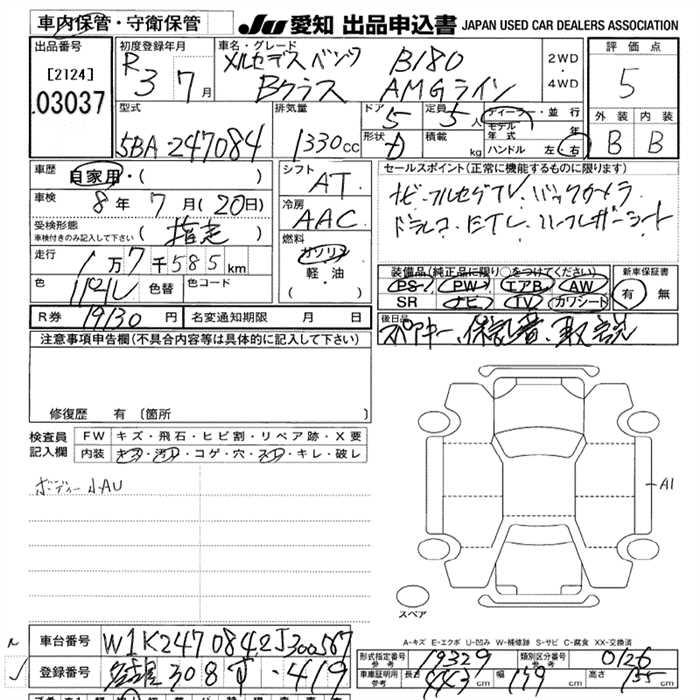 車内保管・守衛保管
JU 愛知 出品申込書 JAPAN USED CAR DEALERS ASSOCIATION
出品番号
[2124]
03037
初度登録年月
R 3 7月
車名・グレード
メルセデスベンツ B180
Bクラス AMGライン
2WD・4WD
評価点
5
外装 内装
B B
型式
5BA-247084
排気量
1330cc
ドア
5
定員
5人
形状
積載 kg
ディーラー・並行
モデル年式 年
ハンドル 左・右
車歴
自家用・( )
車検
8年 7月(20日)
受検形態
車検付きのみ記入して下さい
(指定)
走行
1万7千585km
色
色替
色コード
シフト
AT
冷房
AAC
燃料
ガソリン
軽・油
( )
セールスポイント(正常に機能するものに限ります)
ナビ・フルセグTV・バックカメラ
ドラレコ・ETC・ハーフレザーシート
装備品(純正品に限り○をつけてください)
PS PW エアB AW
SR ナビ TV カワシート
新車保証書
有・無
R券 19130円
名変通知期限 月 日
後日品
スペアキー、保証書、取説
注意事項申告欄(不具合内容等は具体的に記入して下さい)
修復歴 有〔箇所
検査員記入欄
FW キズ・飛石・ヒビ割・リペア跡・X要
内装 キズ・汚レ・コゲ・穴・スレ・キレ・破レ
ボディー小AU
A1
スペア
A-キズ E-エクボ U-凹み W-補修跡 S-サビ C-腐食 XX-交換済
車台番号 W1K2470842J300567
登録番号 名古屋 308 ・419
形式指定番号 参考 19329
類別区分番号 参考 0126
車庫証明用 参考 長さ 443cm 幅 179cm 高さ 155cm